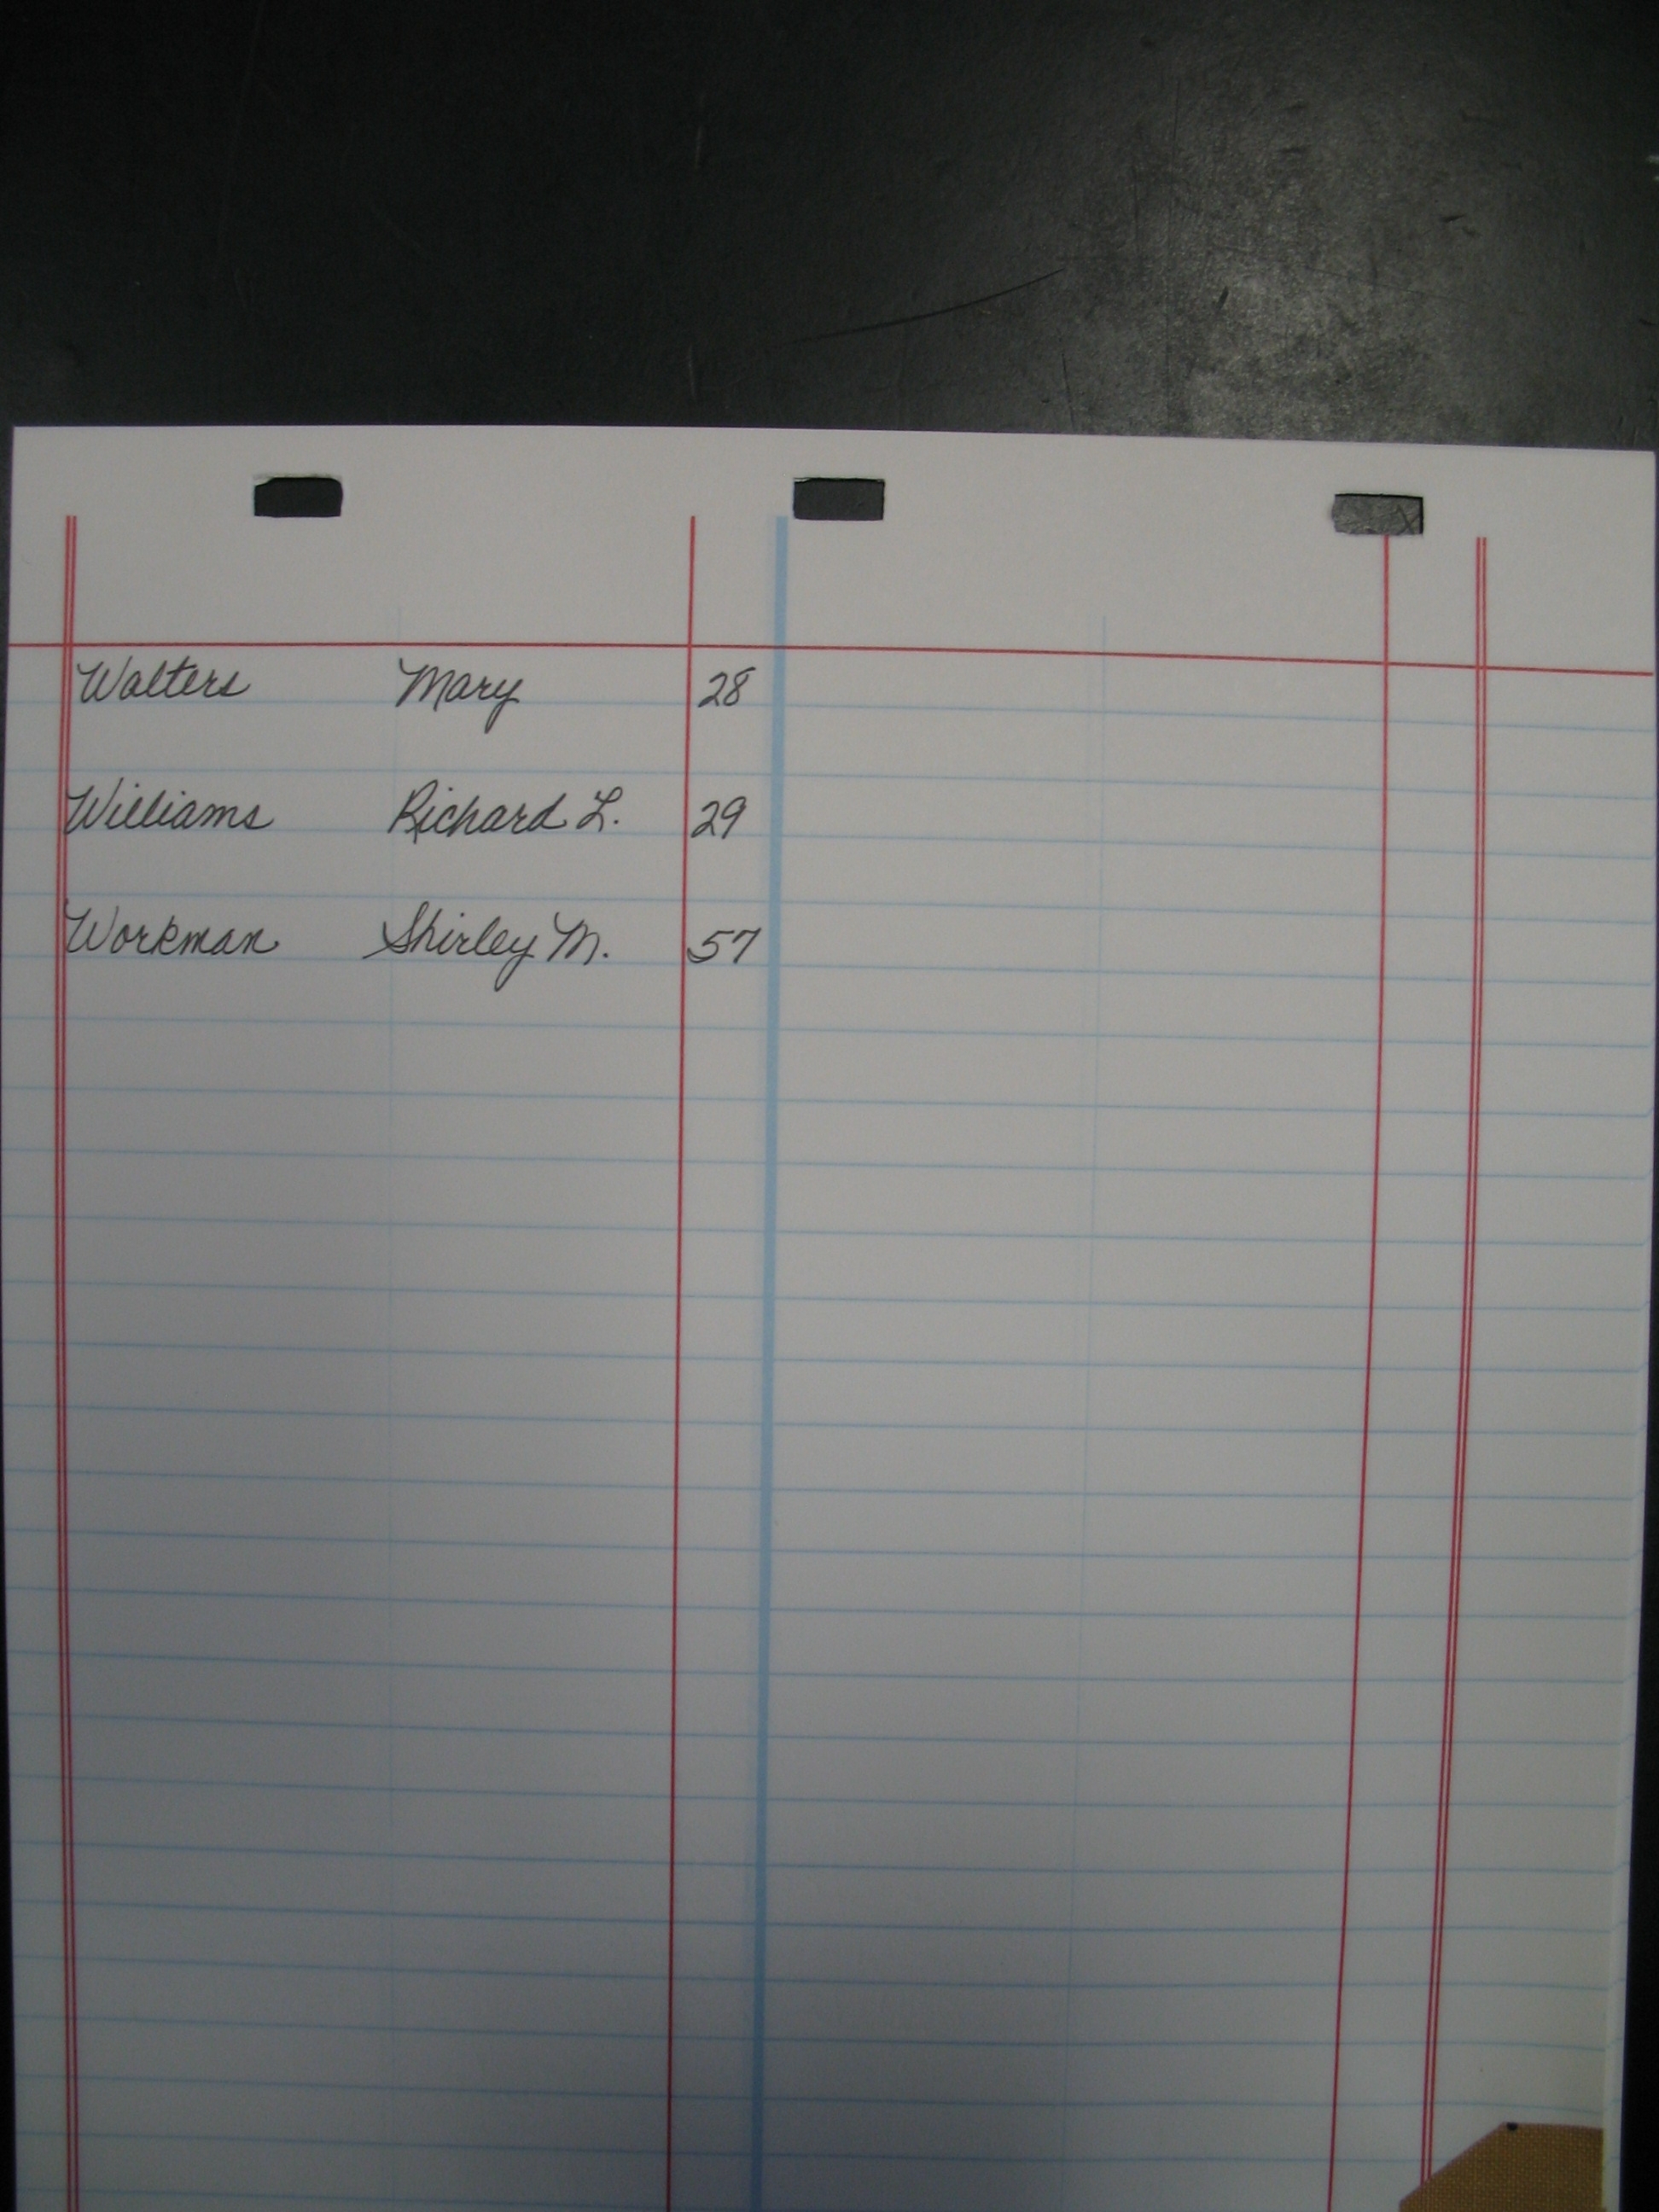 Walters Mary 28
Williams Richard L. 29
Workman Shirley M. 57